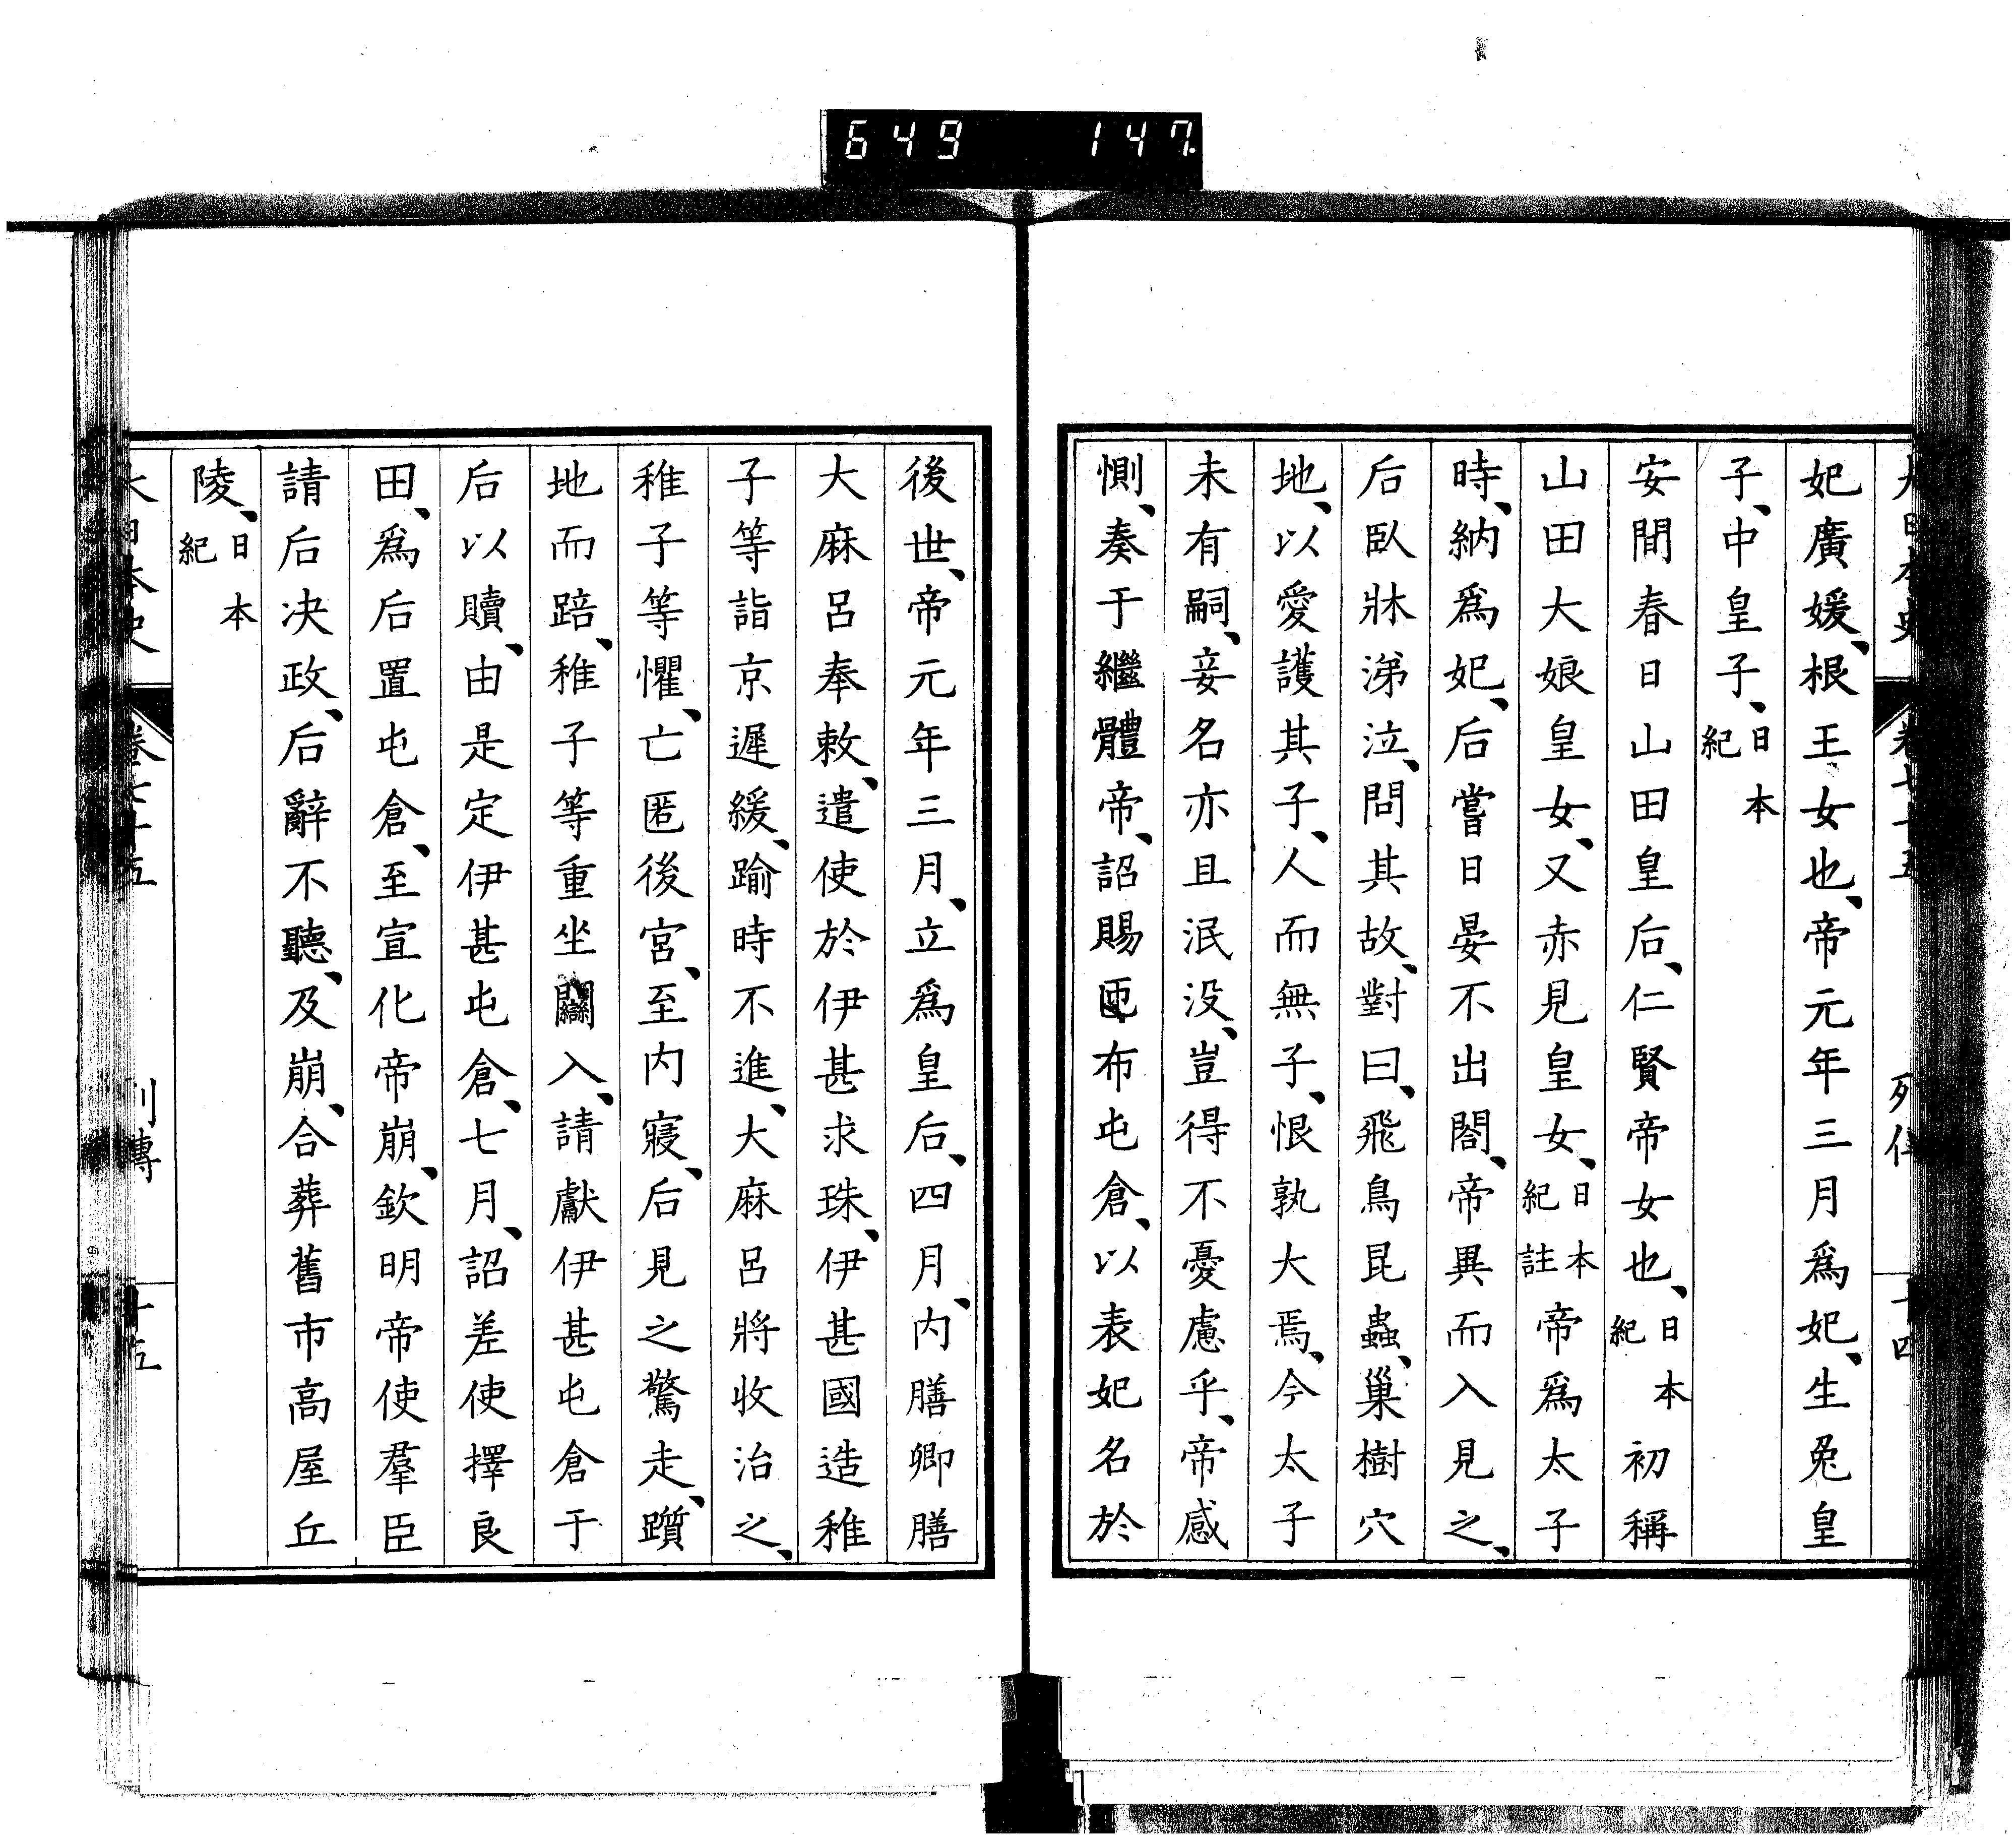 649 147
大日本史 卷七十五 列傳 十四
妃廣媛、根王女也、帝元年三月爲妃、生兔皇
子、中皇子、日本紀
安閒春日山田皇后、仁賢帝女也、日本紀初稱
山田大娘皇女、又赤見皇女、日本紀註帝爲太子
時、納爲妃、后嘗日晏不出閤、帝異而入見之、
后臥牀涕泣、問其故、對曰、飛鳥昆蟲、巢樹穴
地、以愛護其子、人而無子、恨孰大焉、今太子
未有嗣、妾名亦且泯没、豈得不憂慮乎、帝感
惻、奏于繼體帝、詔賜匝布屯倉、以表妃名於
後世、帝元年三月、立爲皇后、四月、内膳卿膳
大麻呂奉敕、遣使於伊甚求珠、伊甚國造稚
子等詣京遲緩、踰時不進、大麻呂將收治之、
稚子等懼、亡匿後宮、至内寢、后見之驚走、躓
地而踣、稚子等重坐闌入、請獻伊甚屯倉于
后以贖、由是定伊甚屯倉、七月、詔差使擇良
田、爲后置屯倉、至宣化帝崩、欽明帝使羣臣
請后决政、后辭不聽、及崩、合葬舊市高屋丘
陵、日本紀
大日本史 卷七十五 列傳 十五